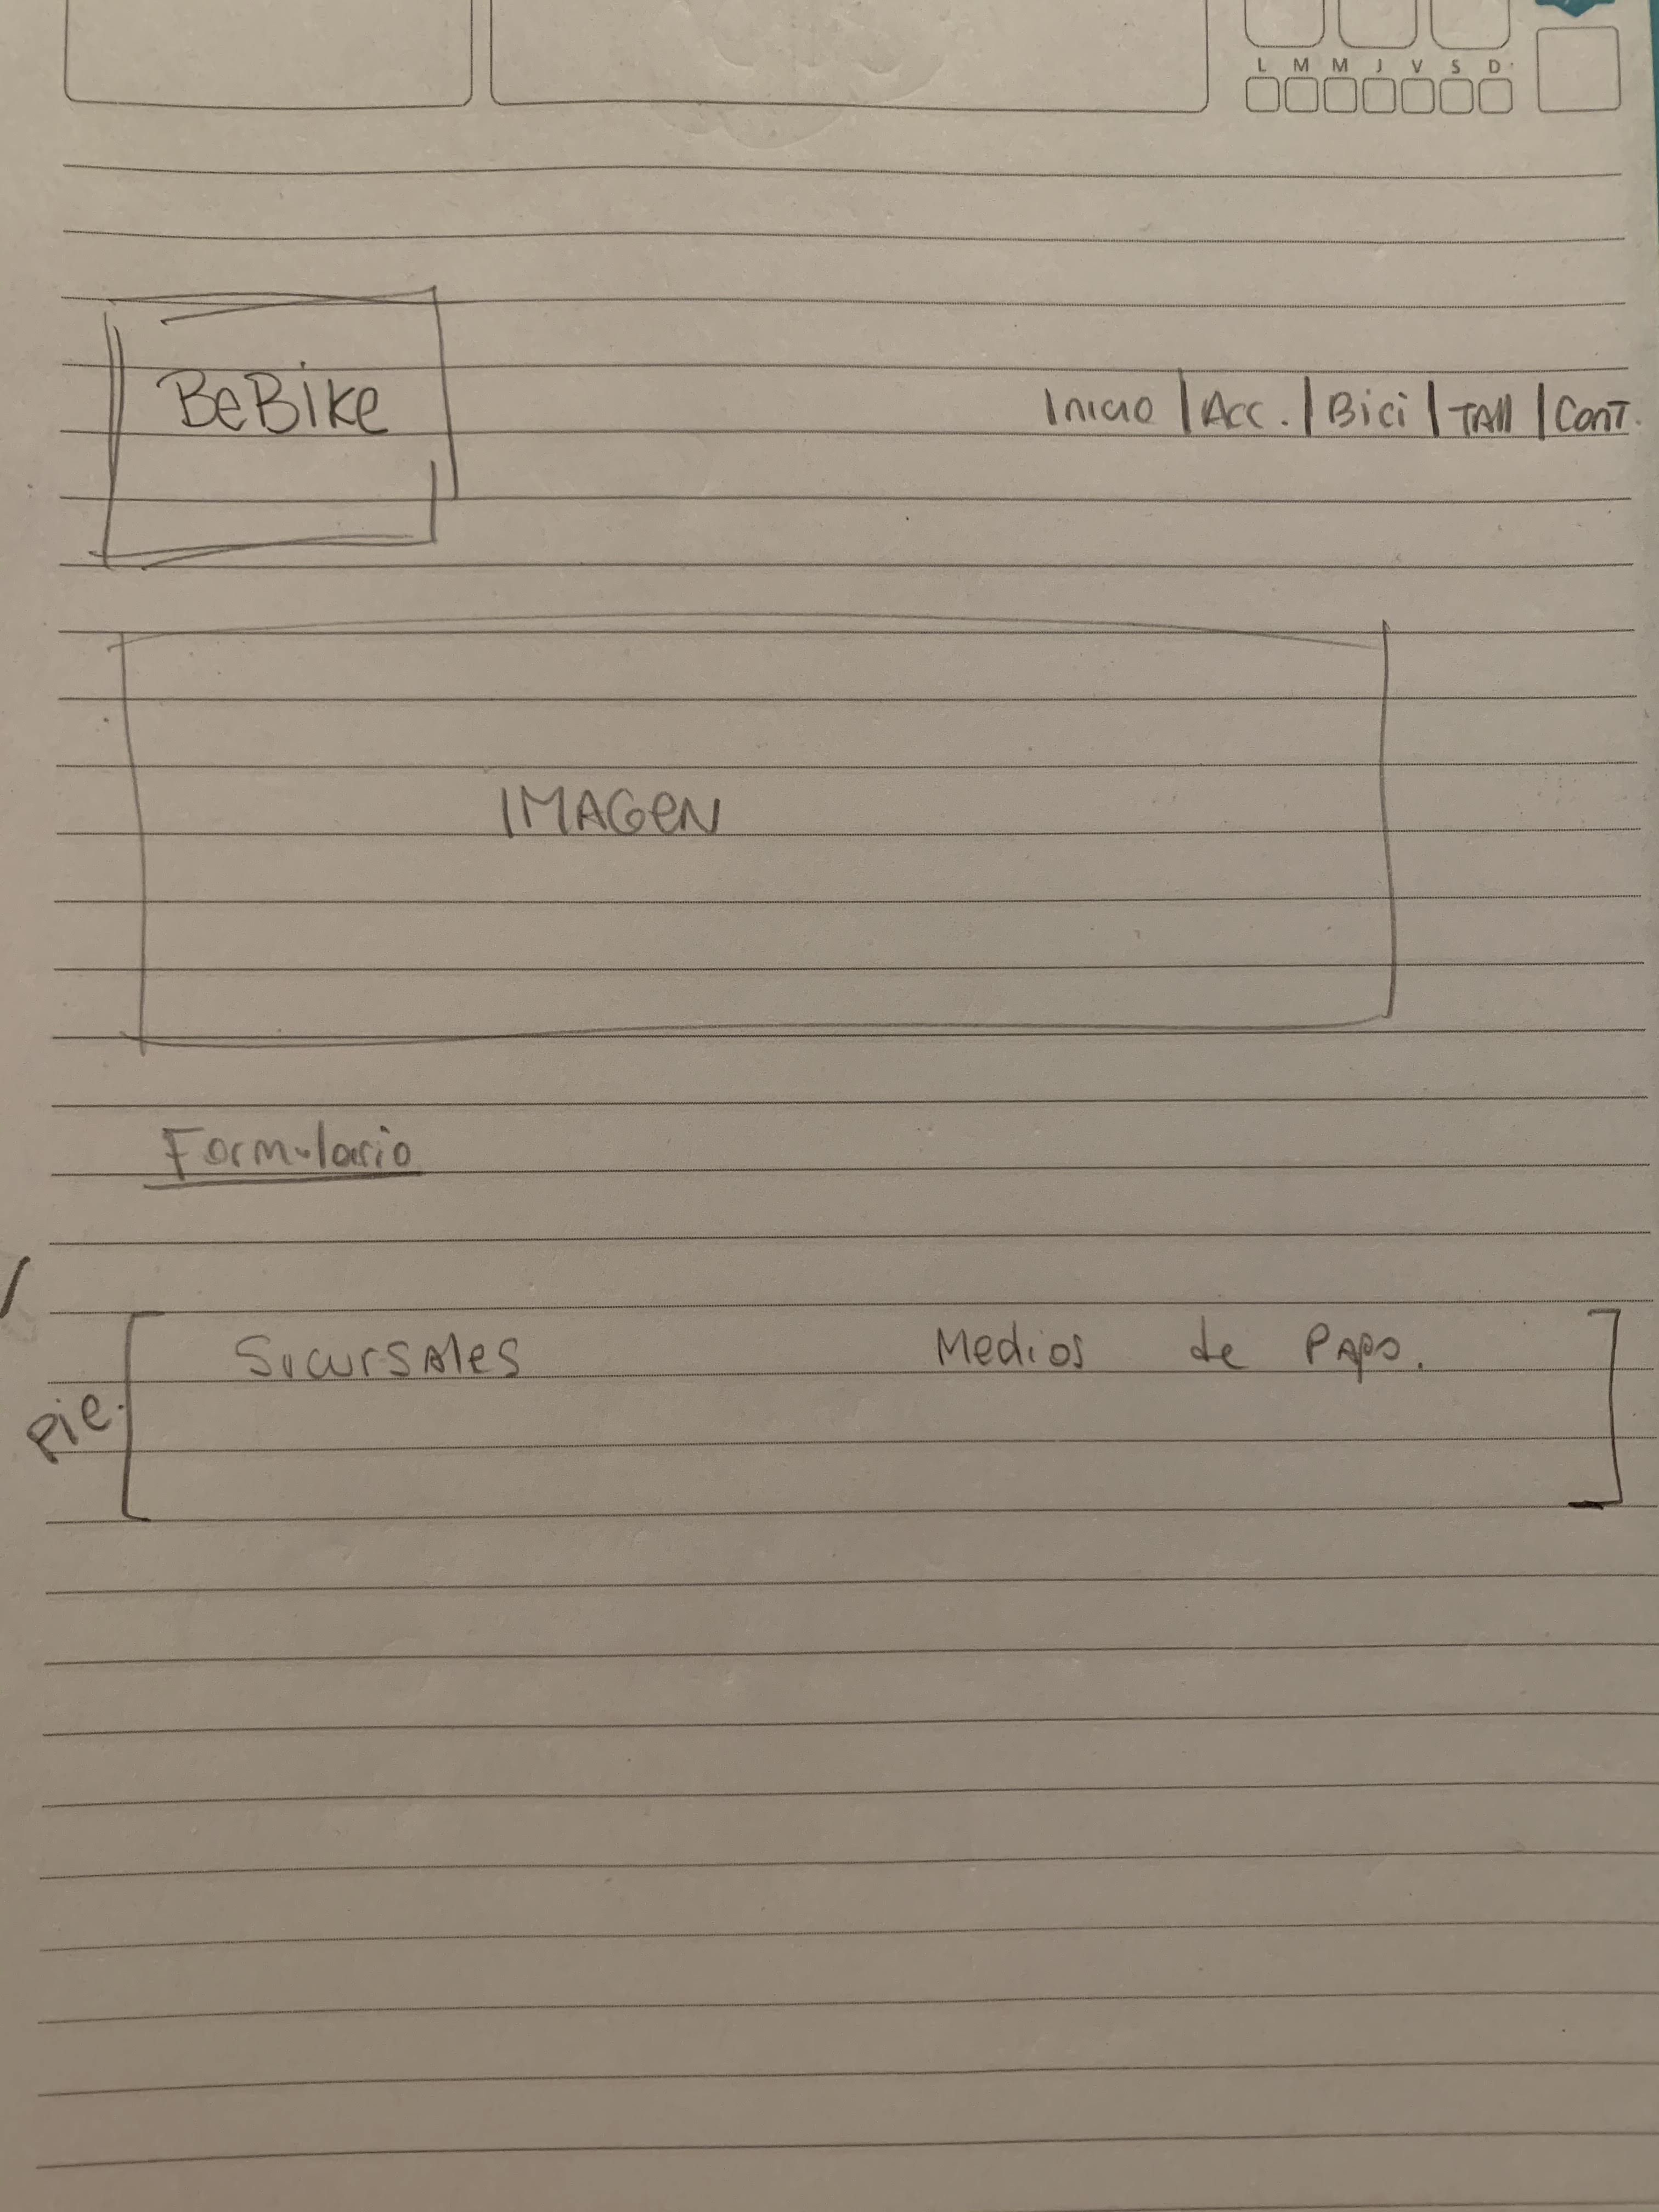 L M M J V S D
BeBike
Inicio | Acc. | Bici | TAll | ConT.
IMAGeN
Formulario
SucursAles
Medios de PAgo.
Pie.